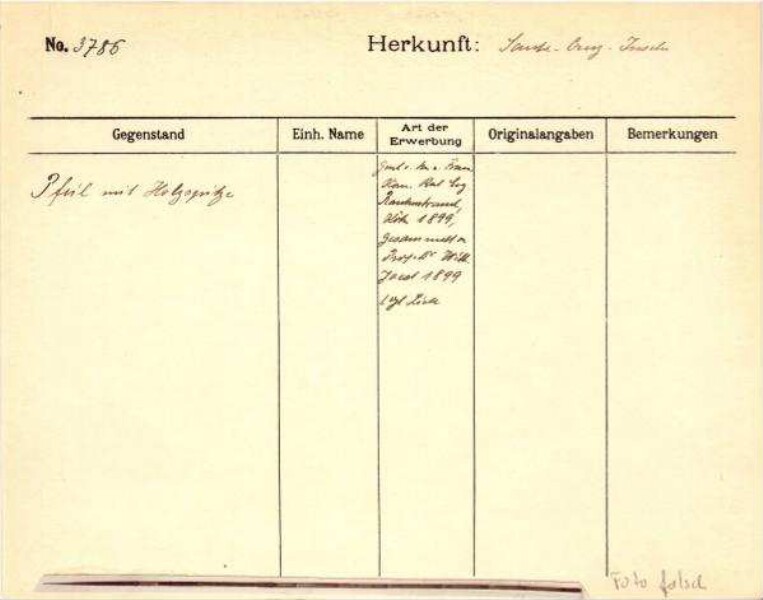 No. 3786
Herkunft: Santa-Cruz-Inseln
Gegenstand
Einh. Name
Art der Erwerbung
Originalangaben
Bemerkungen
Pfeil mit Holzspitze
Rautenstrauch,
Köln 1899,
gesammelt v.
Prof. Dr Wilh.
Joest 1899
Foto falsch